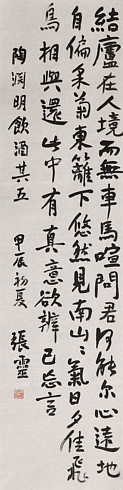 結廬在人境而無車馬喧問君何能尔心遠地
自偏采菊東籬下悠然見南山々氣日夕佳飛
鳥相與還此中有真意欲辨已忘言
陶渊明飲酒其五 甲辰初夏 張靈